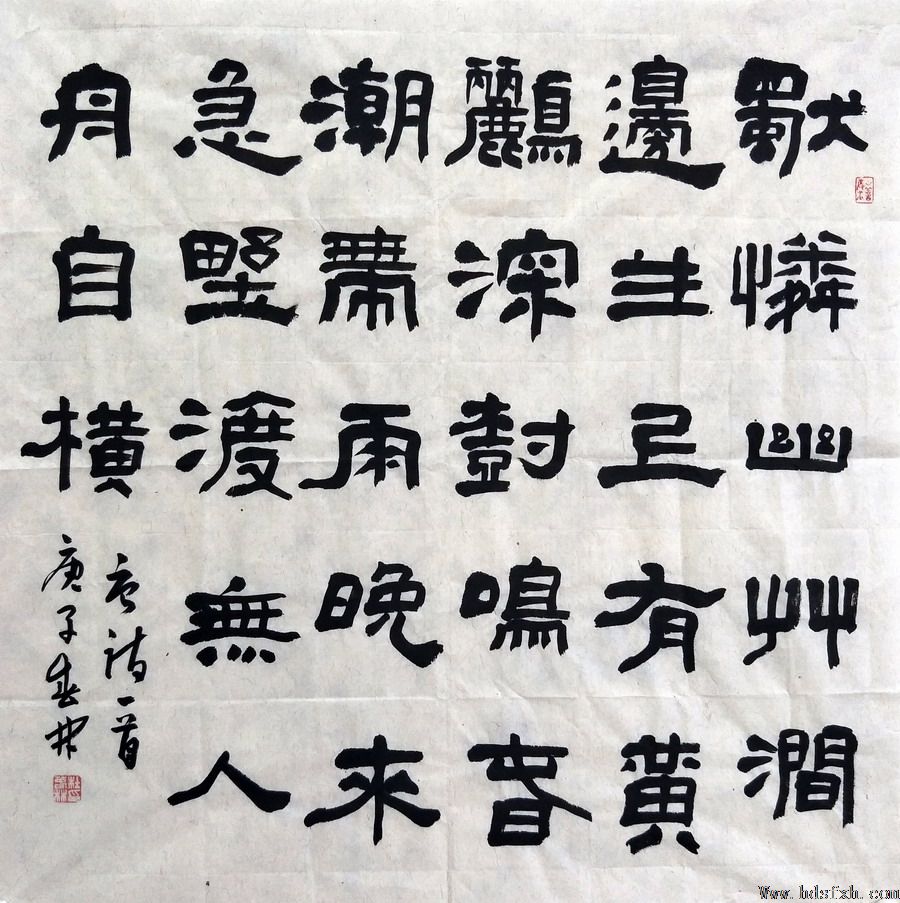 獨憐幽艸澗
邊生上有黃
鸝深樹鳴春
潮帶雨晚來
急野渡無人
舟自橫
唐詩一首
庚子春林
Www.hdsfxh.com